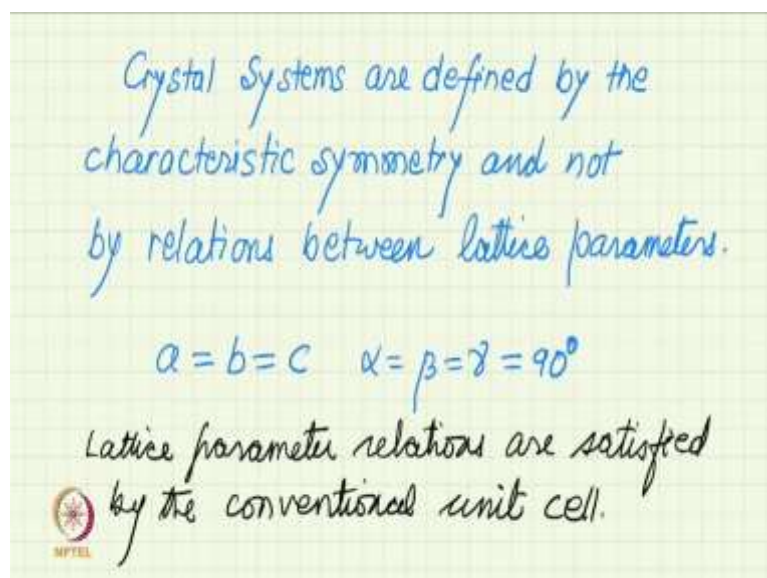 Crystal Systems are defined by the
characteristic symmetry and not
by relations between lattice parameters.
a = b = c α = β = γ = 90°
Lattice parameter relations are satisfied
by the conventional unit cell.
NPTEL